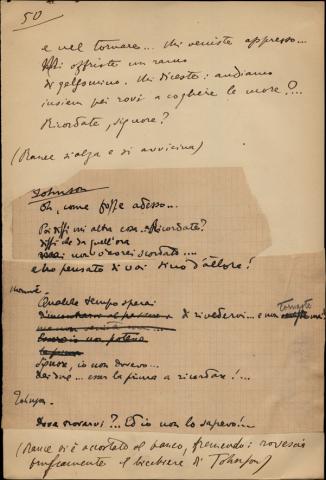 50
e nel tornare... Mi veniste appresso...
Mi offriste un ramo
di gelsomino. Mi diceste: andiamo
insiem pei rovi a cogliere le more?...
Ricordate, signore?
(Rance si alza e si avvicina)
Johnson
Oh, come fosse adesso...
Poi dissi un'altra cosa. Ricordate?
dissi che da quell'ora
mai non v'avrei scordato....
e ho pensato di voi d'allora!
Qualche tempo sperai
di rivedervi... e non tornaste
Signore, io non dovevo...
esser la prima a ricordare!...
Johnson.
Dove trovarvi?... Ed io non lo sapevo!...
(Rance si è accostato al banco, fremendo: rovescia
bruscamente il bicchiere di Johnson)